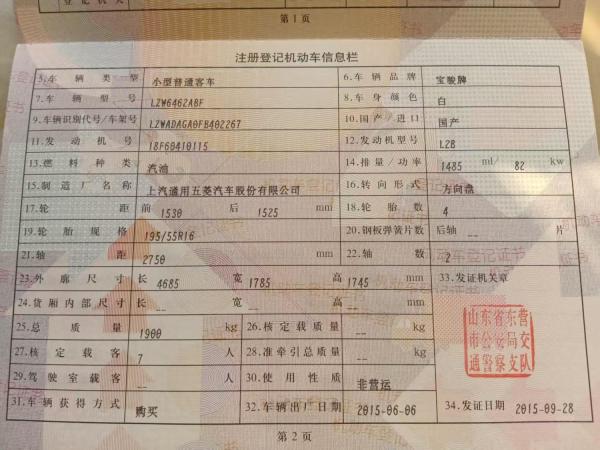 第1页
注册登记机动车信息栏
5.车辆类型 小型普通客车 6.车辆品牌 宝骏牌
7.车辆型号 LZW6462ABF 8.车身颜色 白
9.车辆识别代号/车架号 LZWADAGA0FB402267 10.国产/进口 国产
11.发动机号 18F60410115 12.发动机型号 L2B
13.燃料种类 汽油 14.排量/功率 1485 ml/ 82 kw
15.制造厂名称 上汽通用五菱汽车股份有限公司 16.转向形式 方向盘
17.轮距 前 1530 后 1525 mm 18.轮胎数 4
19.轮胎规格 195/55R16 20.钢板弹簧片数 后轴 -- 片
21.轴距 2750 mm 22.轴数 2
23.外廓尺寸 长 4685 宽 1785 高 1745 mm 33.发证机关章
24.货厢内部尺寸 长 -- 宽 -- 高 -- mm
25.总质量 1900 kg 26.核定载质量 -- kg
27.核定载客 7 人 28.准牵引总质量 -- kg
山东省东营
市公安局交
通警察支队
29.驾驶室载客 -- 人 30.使用性质 非营运
31.车辆获得方式 购买 32.车辆出厂日期 2015-06-06 34.发证日期 2015-09-28
第2页